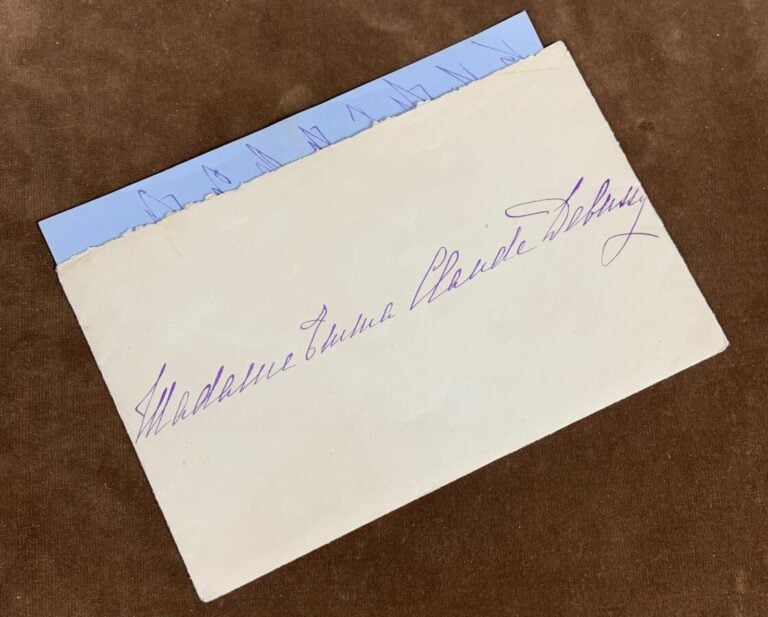 Madame Emma Claude Debussy